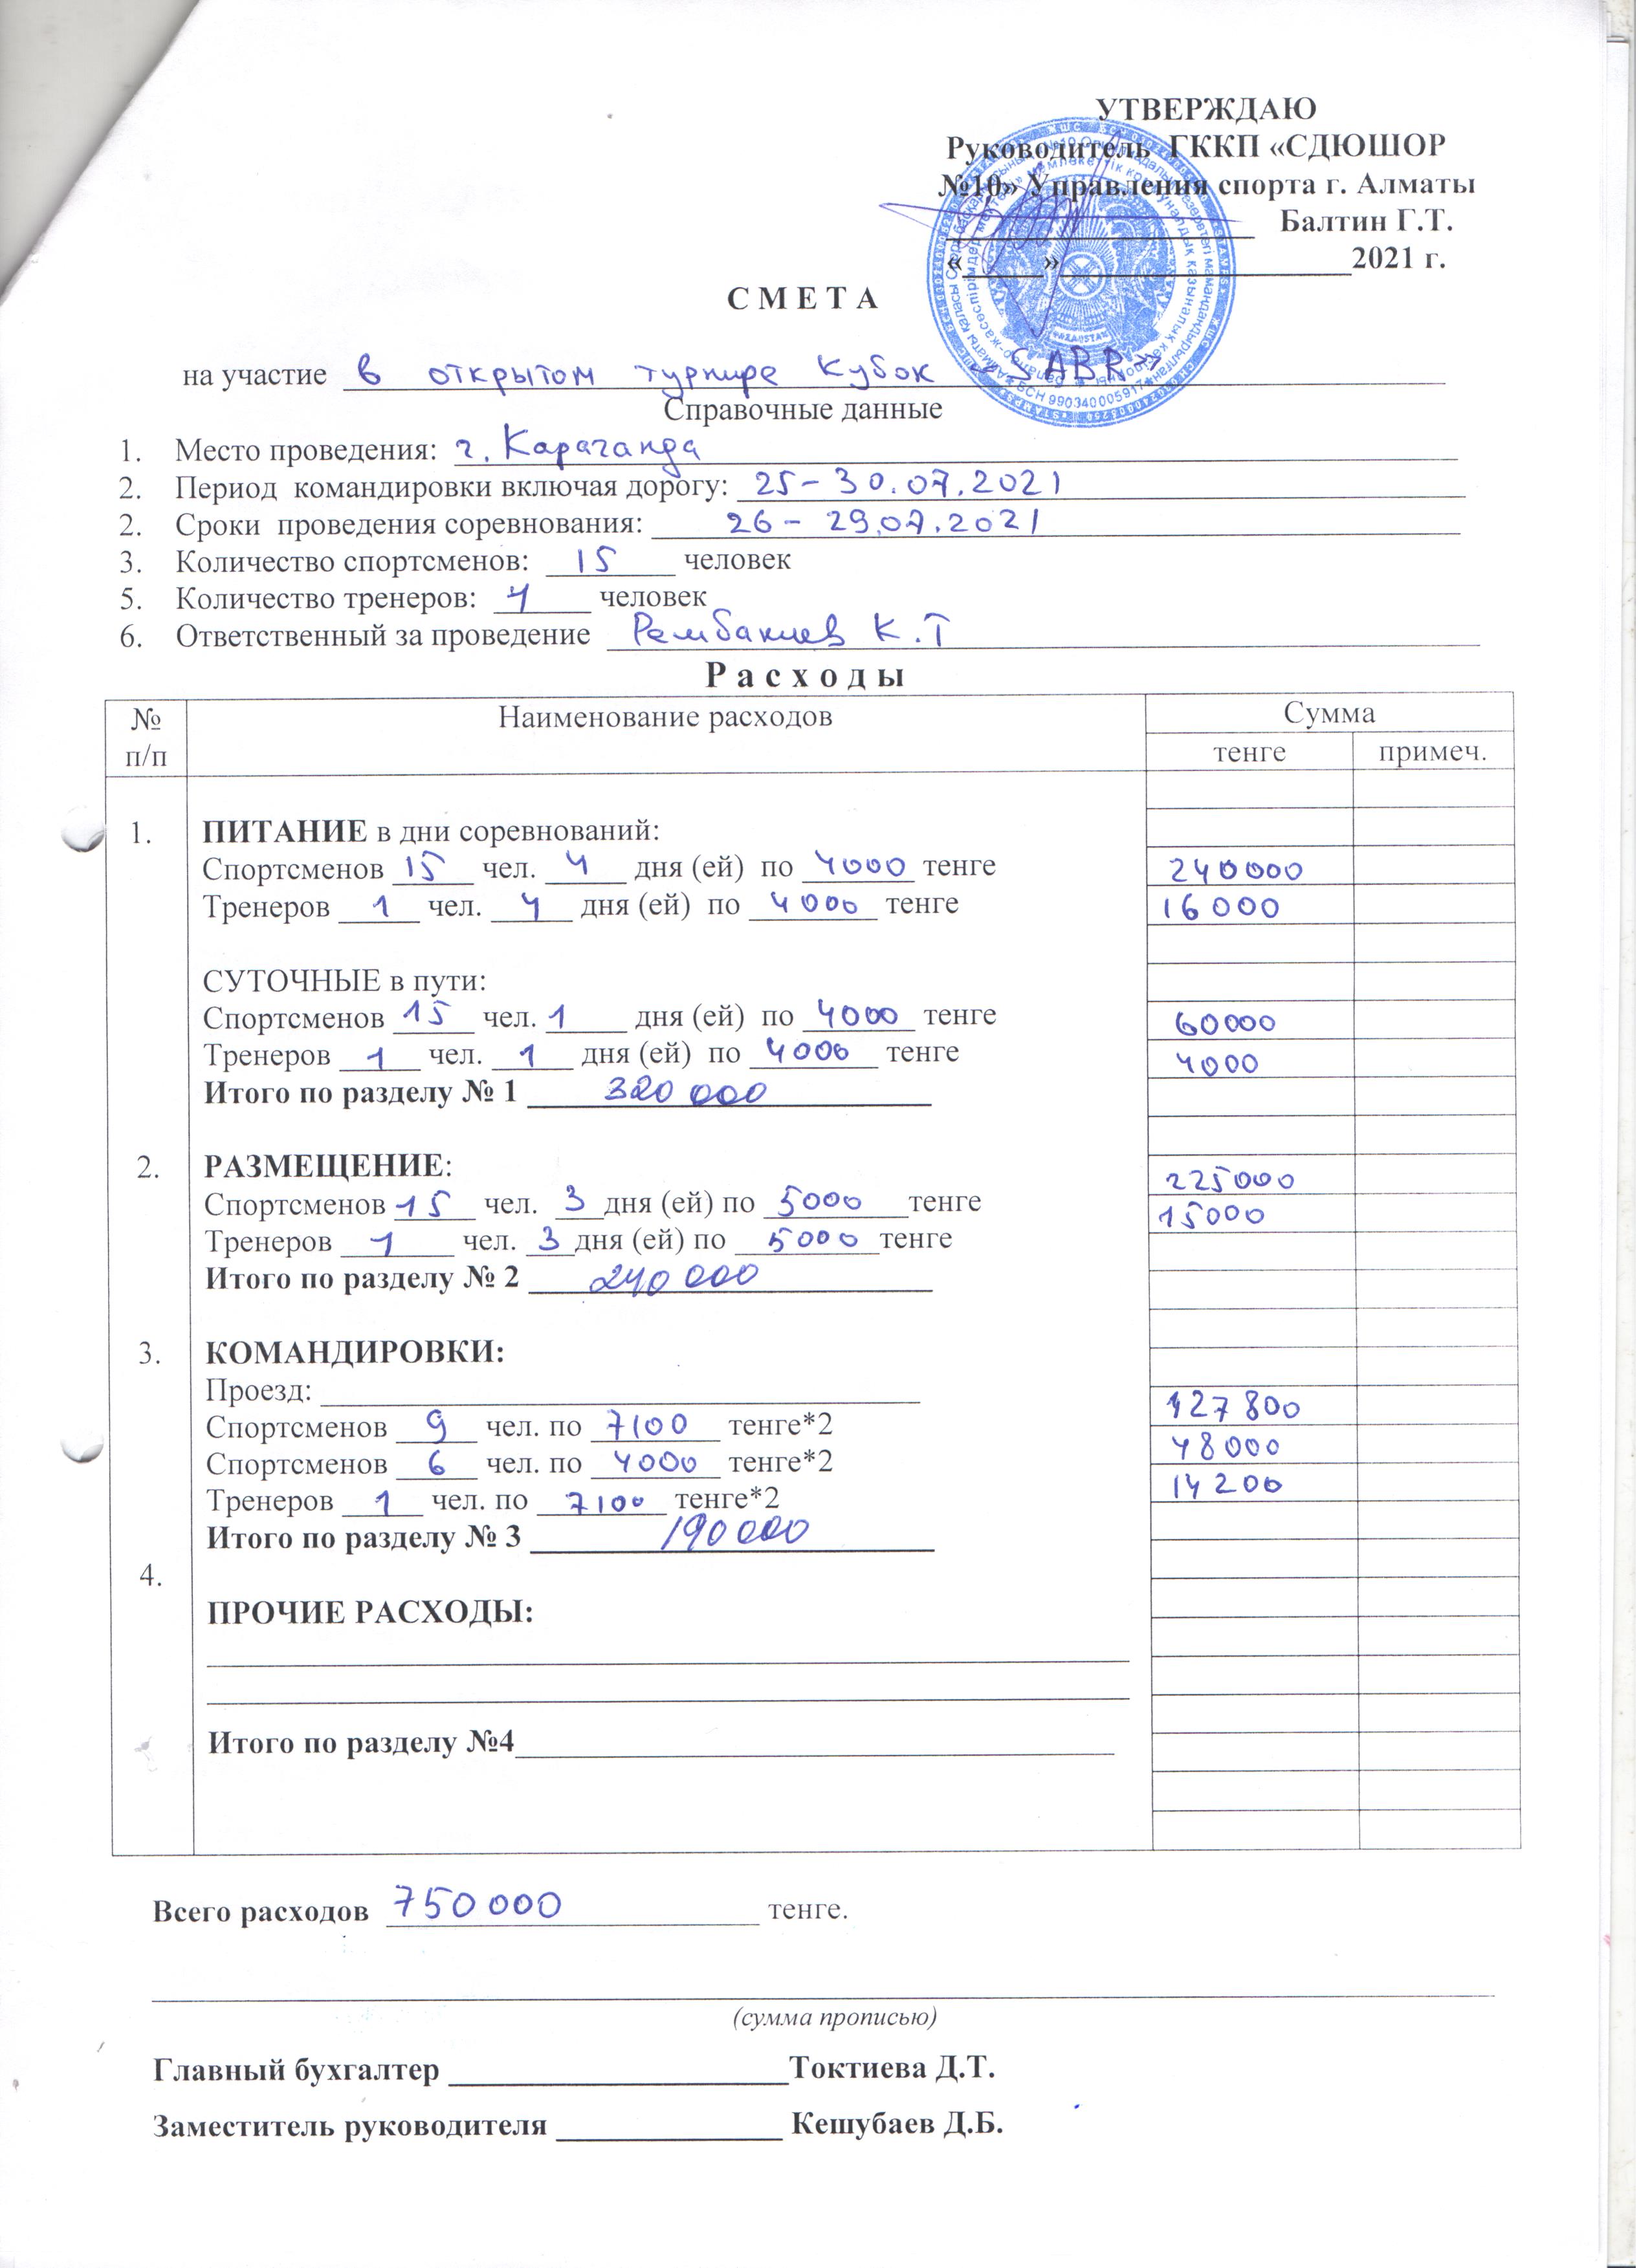 УТВЕРЖДАЮ
Руководитель ГККП «СДЮШОР
№10» Управления спорта г. Алматы
Балтин Г.Т.
«____»____________2021 г.
С М Е Т А
на участие в открытом турнире Кубок «SABR»
Справочные данные
1. Место проведения: г. Караганда
2. Период командировки включая дорогу: 25-30.07.2021
2. Сроки проведения соревнования: 26-29.07.2021
3. Количество спортсменов: 15 человек
5. Количество тренеров: 1 человек
6. Ответственный за проведение К.Т
Р а с х о д ы
№ п/п Наименование расходов Сумма
тенге примеч.
1. ПИТАНИЕ в дни соревнований:
Спортсменов 15 чел. 4 дня (ей) по 4000 тенге 240000
Тренеров 1 чел. 4 дня (ей) по 4000 тенге 16000
СУТОЧНЫЕ в пути:
Спортсменов 15 чел. 1 дня (ей) по 4000 тенге 60000
Тренеров 1 чел. 1 дня (ей) по 4000 тенге 4000
Итого по разделу № 1 320 000
2. РАЗМЕЩЕНИЕ:
Спортсменов 15 чел. 3 дня (ей) по 5000 тенге 225000
Тренеров 1 чел. 3 дня (ей) по 5000 тенге 15000
Итого по разделу № 2 240 000
3. КОМАНДИРОВКИ:
Проезд:
Спортсменов 9 чел. по 7100 тенге*2 127 800
Спортсменов 6 чел. по 4000 тенге*2 48000
Тренеров 1 чел. по 7100 тенге*2 14200
Итого по разделу № 3 190 000
4.
ПРОЧИЕ РАСХОДЫ:
Итого по разделу №4
Всего расходов 750 000 тенге.
(сумма прописью)
Главный бухгалтер Токтиева Д.Т.
Заместитель руководителя Кешубаев Д.Б.
БСН 990340005917